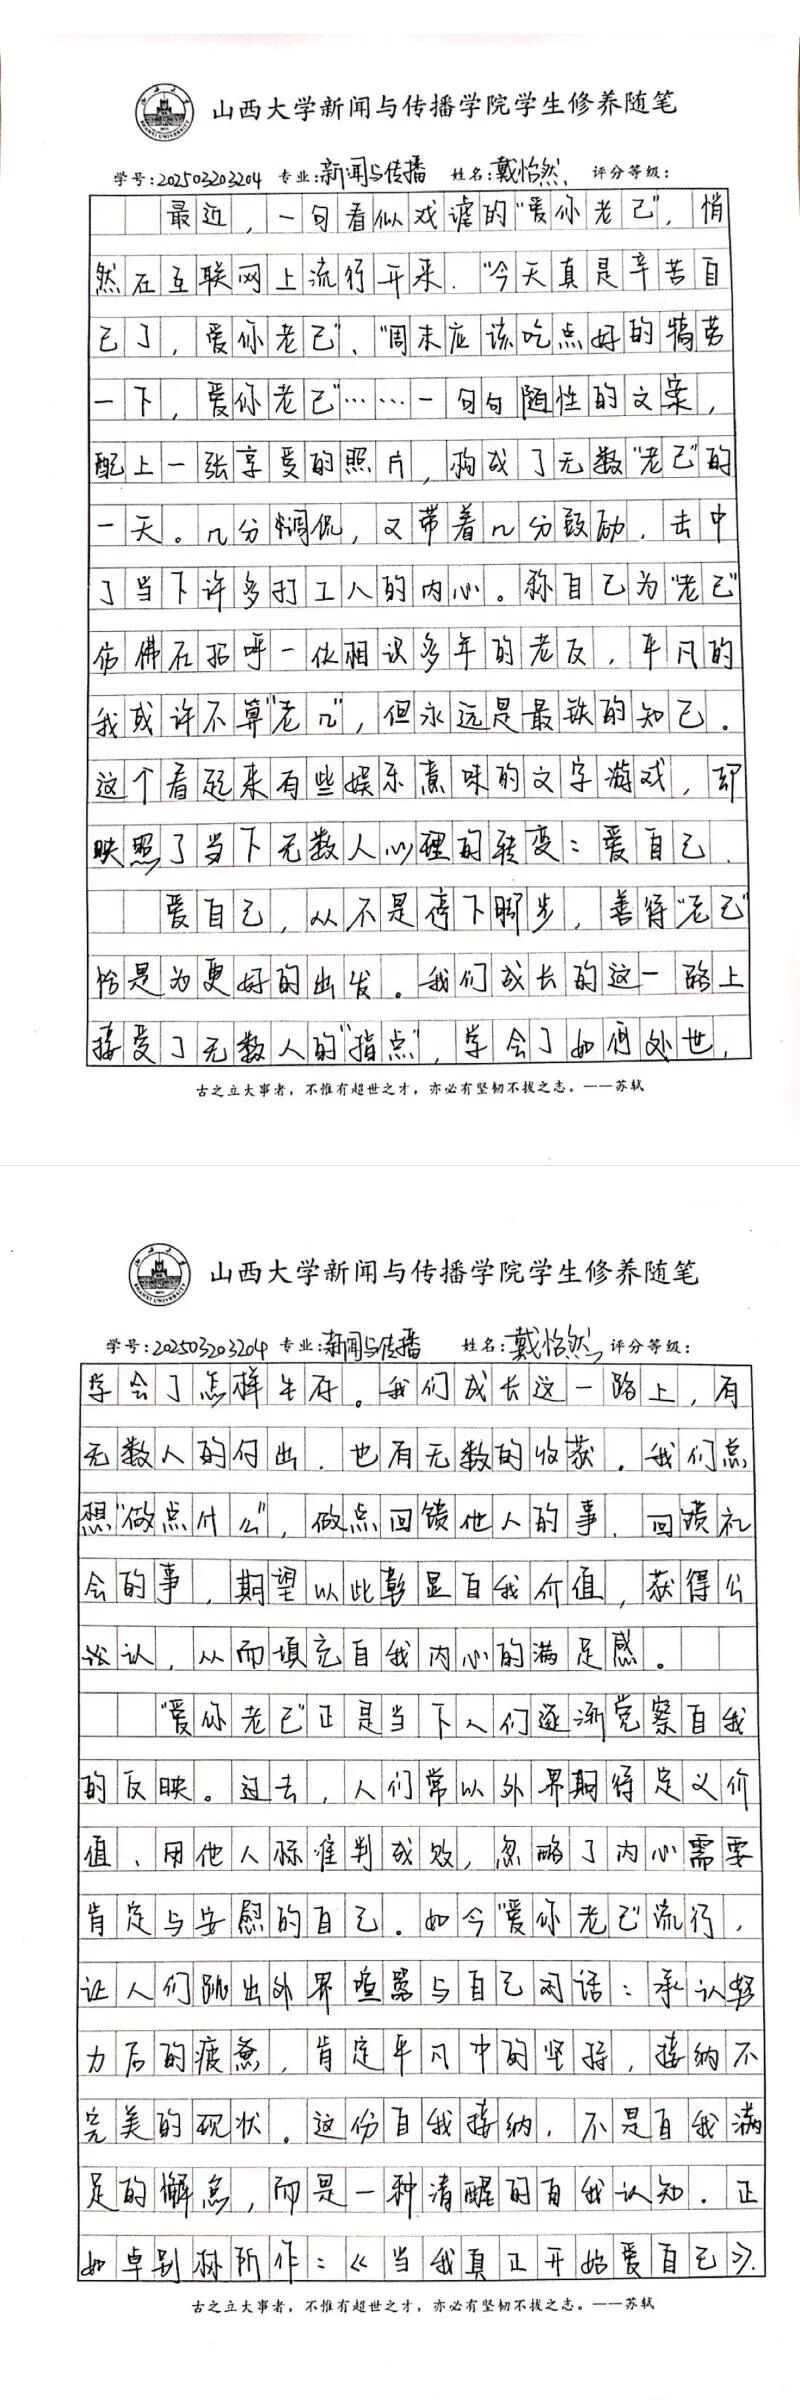 山西大学新闻与传播学院学生修养随笔
学号:202503203204 专业:新闻与传播 姓名:戴怡然 评分等级:
最近，一句看似戏谑的“爱你老己”，悄
然在互联网上流行开来.“今天真是辛苦自
己了，爱你老己”、“周末应该吃点好的犒劳
一下，爱你老己”……一句句随性的文案，
配上一张享受的照片，构成了无数“老己”的
一天。几分调侃，又带着几分鼓励，击中
了当下许多打工人的内心。称自己为“老己”
仿佛在招呼一位相识多年的老友，平凡的
我或许不算“老几”，但永远是最铁的知己.
这个看起来有些娱乐意味的文字游戏，却
映照了当下无数人心理的转变：爱自己.
爱自己，从不是停下脚步，善待“老己”
恰是为更好的出发。我们成长的这一路上
接受了无数人的“指点”，学会了如何处世，
古之立大事者，不惟有超世之才，亦必有坚韧不拔之志。——苏轼
山西大学新闻与传播学院学生修养随笔
学号:202503203204 专业:新闻与传播 姓名:戴怡然 评分等级:
学会了怎样生存。我们成长这一路上，有
无数人的付出，也有无数的收获。我们总
想“做点什么”，做点回馈他人的事、回馈社
会的事，期望以此彰显自我价值，获得公
认，从而填充自我内心的满足感。
“爱你老己”正是当下人们逐渐觉察自我
的反映。过去，人们常以外界期待定义价
值、用他人标准判成败，忽略了内心需要
肯定与安慰的自己。如今“爱你老己”流行，
让人们跳出外界喧嚣与自己对话：承认努
力后的疲惫，肯定平凡中的坚持，接纳不
完美的现状。这份自我接纳，不是自我满
足的懈怠，而是一种清醒的自我认知.正
如卓别林所作：《当我真正开始爱自己》.
古之立大事者，不惟有超世之才，亦必有坚韧不拔之志。——苏轼